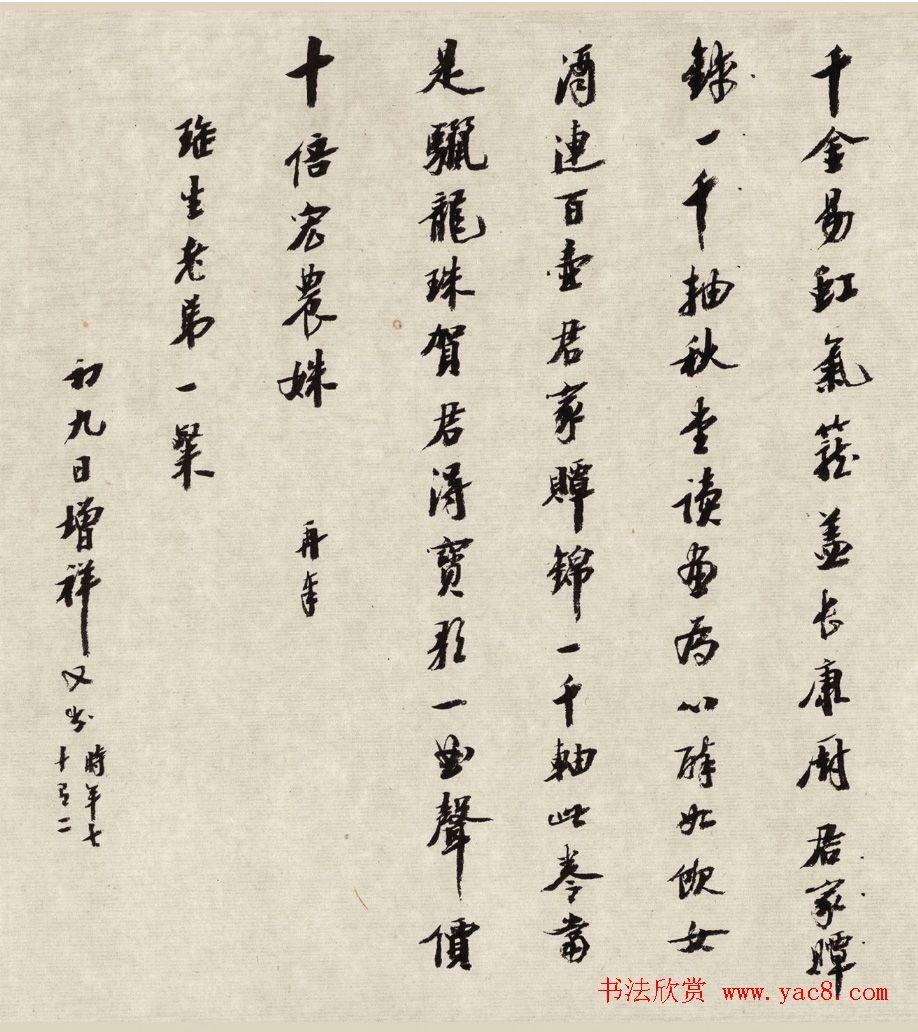 千金易虹氣籠蓋長康厨君家贉
錦一千抽秋堂讀畫為心醉如飲女
酒連百壺君家贉錦一千軸此卷當
是驪龍珠賀君得寶歌一曲聲價
十倍宏農姝 再
璇生老弟一粲
初九日增祥又
時年七
十有二
书法欣赏 www.yac8.com